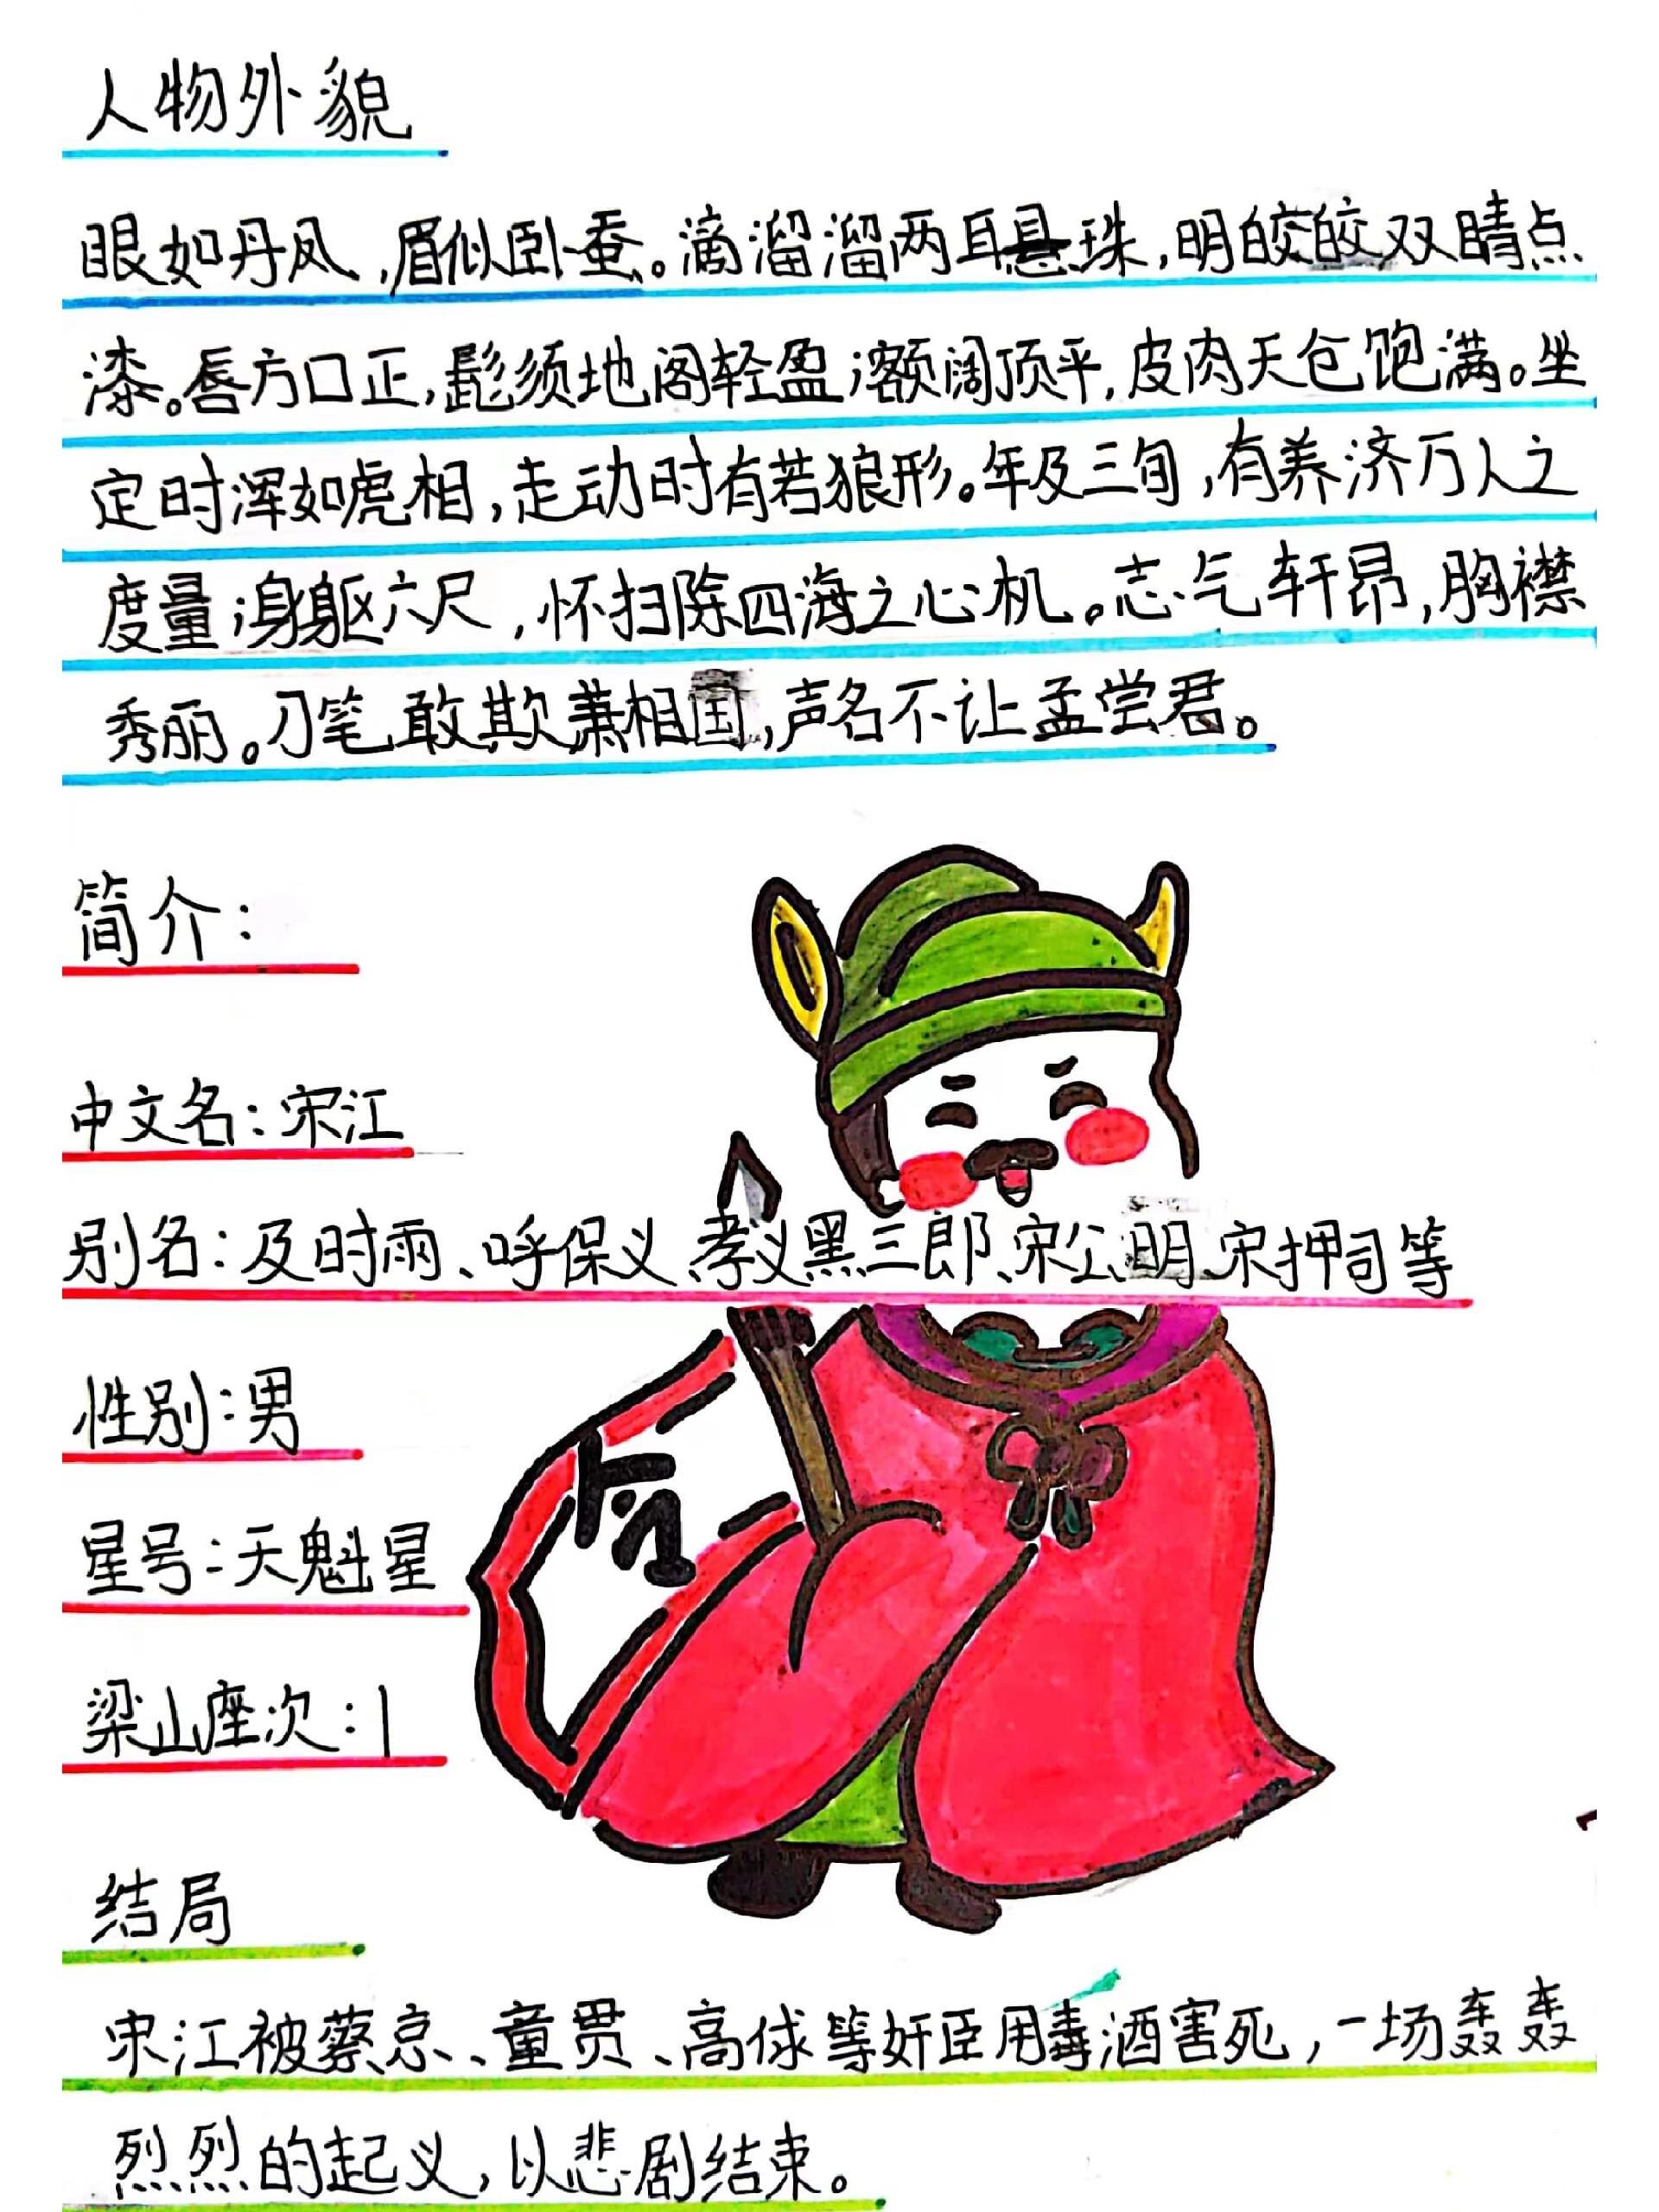 人物外貌
眼如丹凤，眉似卧蚕。滴溜溜两耳悬珠，明皎皎双睛点
漆。唇方口正，髭须地阁轻盈；额阔顶平，皮肉天仓饱满。坐
定时浑如虎相，走动时有若狼形。年及三旬，有养济万人之
度量；身躯六尺，怀扫除四海之心机。志气轩昂，胸襟
秀丽。刀笔敢欺萧相国，声名不让孟尝君。
简介：
中文名：宋江
别名：及时雨、呼保义、孝义黑三郎、宋公明、宋押司等
性别：男
星号：天魁星
梁山座次：1
结局
宋江被蔡京、童贯、高俅等奸臣用毒酒害死，一场轰轰
烈烈的起义，以悲剧结束。